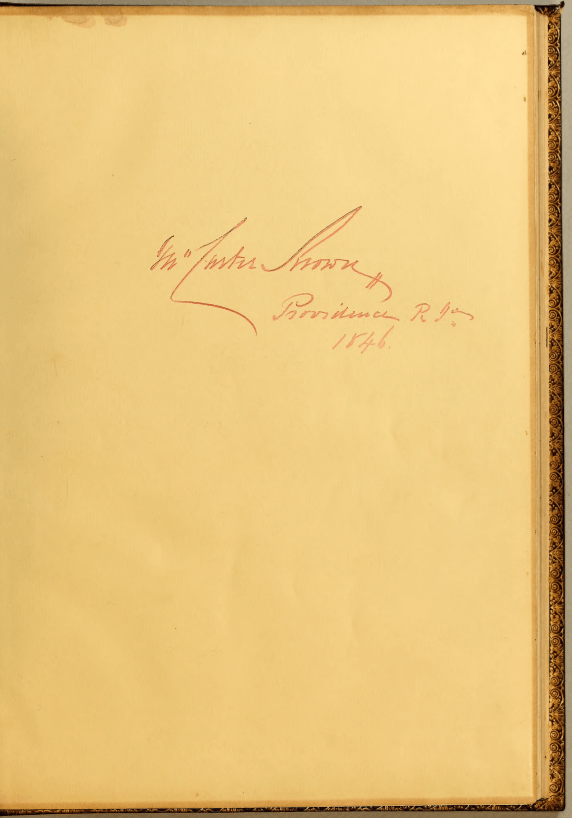 Jnº Carter Brown
Providence R. Iª
1846.